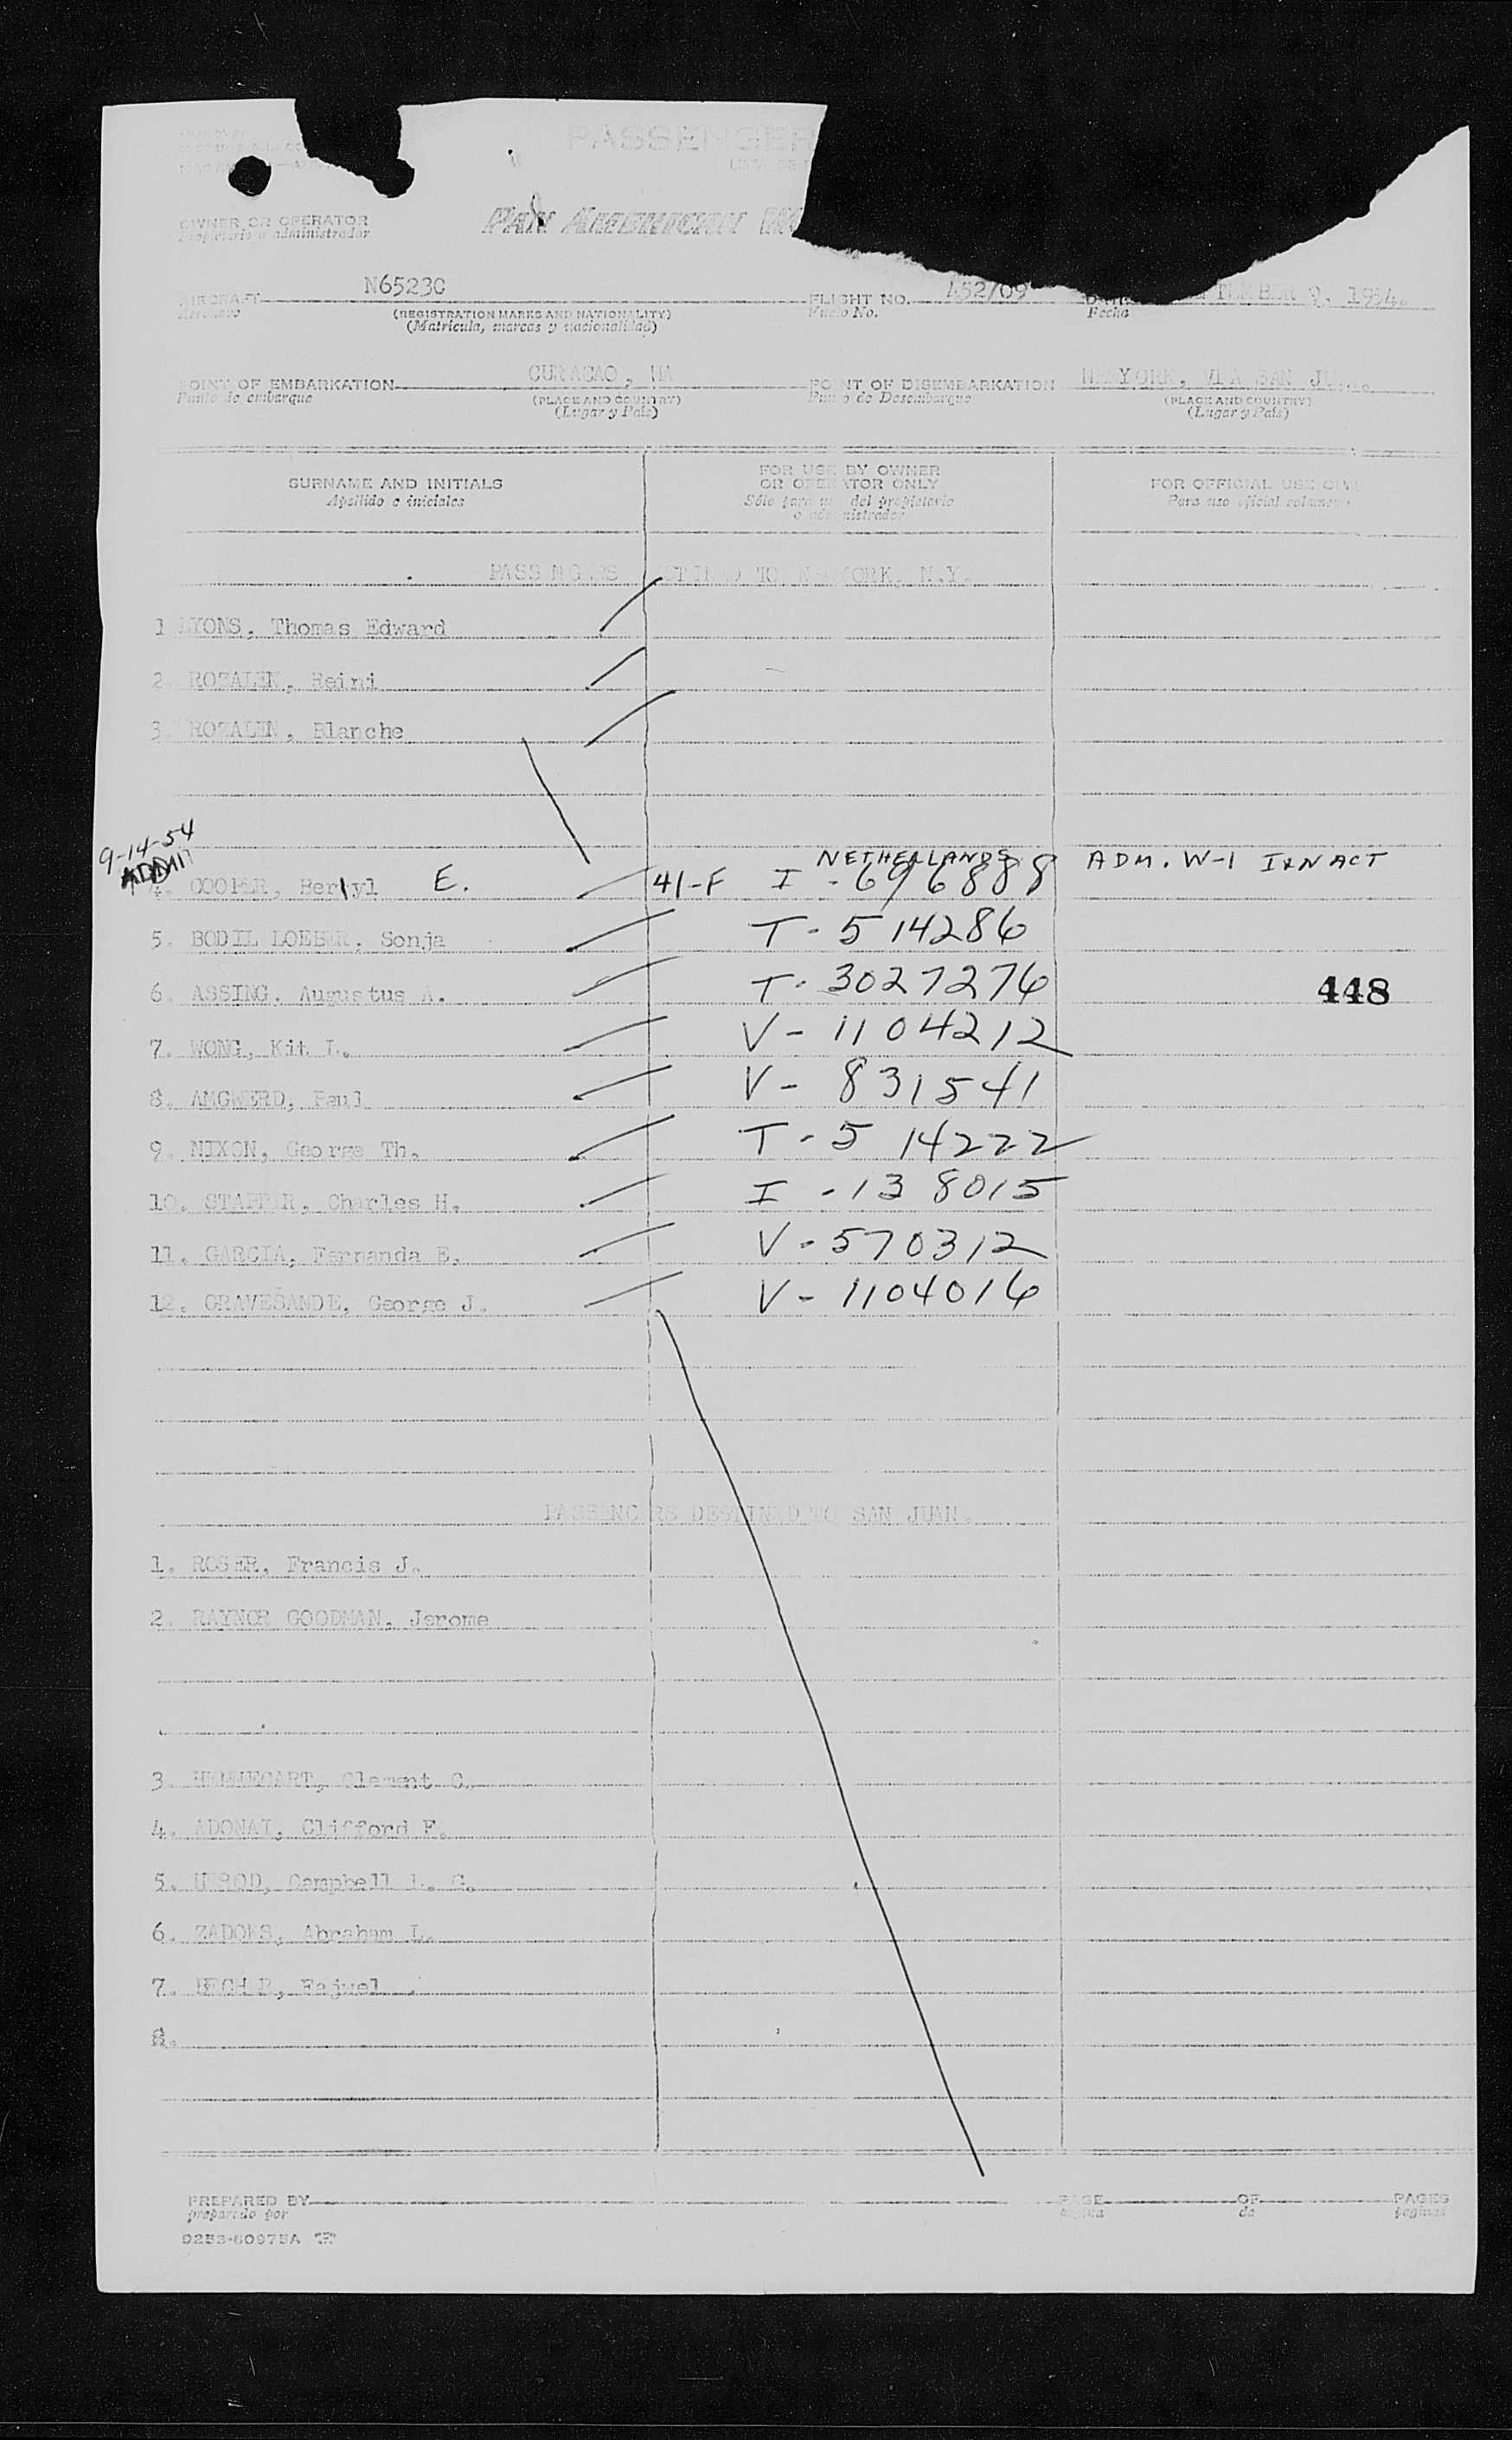 PASSENGER
LISTA DE
OWNER OR OPERATOR
Propietario o administrador
PAN AMERICAN
AIRCRAFT N6523C FLIGHT NO. 452/09 9, 1954.
Aeronave (REGISTRATION MARKS AND NATIONALITY) Vuelo No. Fecha
(Matricula, marcas y nacionalidad)
POINT OF EMBARKATION CURACAO, NA POINT OF DISEMBARKATION NEWYORK, VIA SAN
Punto de embarque (PLACE AND COUNTRY) Punto de Desembarque (PLACE AND COUNTRY)
(Lugar y País) (Lugar y País)
SURNAME AND INITIALS FOR USE BY OWNER OR OPERATOR ONLY FOR OFFICIAL USE ONLY
Apellido e iniciales Sólo para uso del propietario o administrador Para uso oficial solamente
PASSENGERS TO NEW YORK, N.Y.
1 LYONS, Thomas Edward
2. ROZALEN, Reini
3. ROZALEN, Blanche
9-14-54
ADMIT
NETHERLANDS
4. COOPER, Berlyl E. 41-F I - 696888 ADM. W-1 I&N ACT
5. BODIL LOEBER, Sonja T - 514286
6. ASSING, Augustus A. T - 3027276 448
7. WONG, Kit L. V - 1104212
8. AMGWERD, Paul V - 831541
9. NIXON, George Th. T - 514222
10. Charles H. I - 138015
11. GARCIA, Fernanda E. V - 570312
12. GRAVESANDE, George J. V - 1104016
PASSENGERS DESTINED TO SAN JUAN.
1. ROSER, Francis J.
2. RAYNOR GOODMAN, Jerome
3. Clement
4. ADONAI, Clifford F.
5. Campbell
6. ZADOKS, Abraham L.
7. Fajwel
8.
PREPARED BY PAGE OF PAGES
preparado por página de páginas
9253-60975A